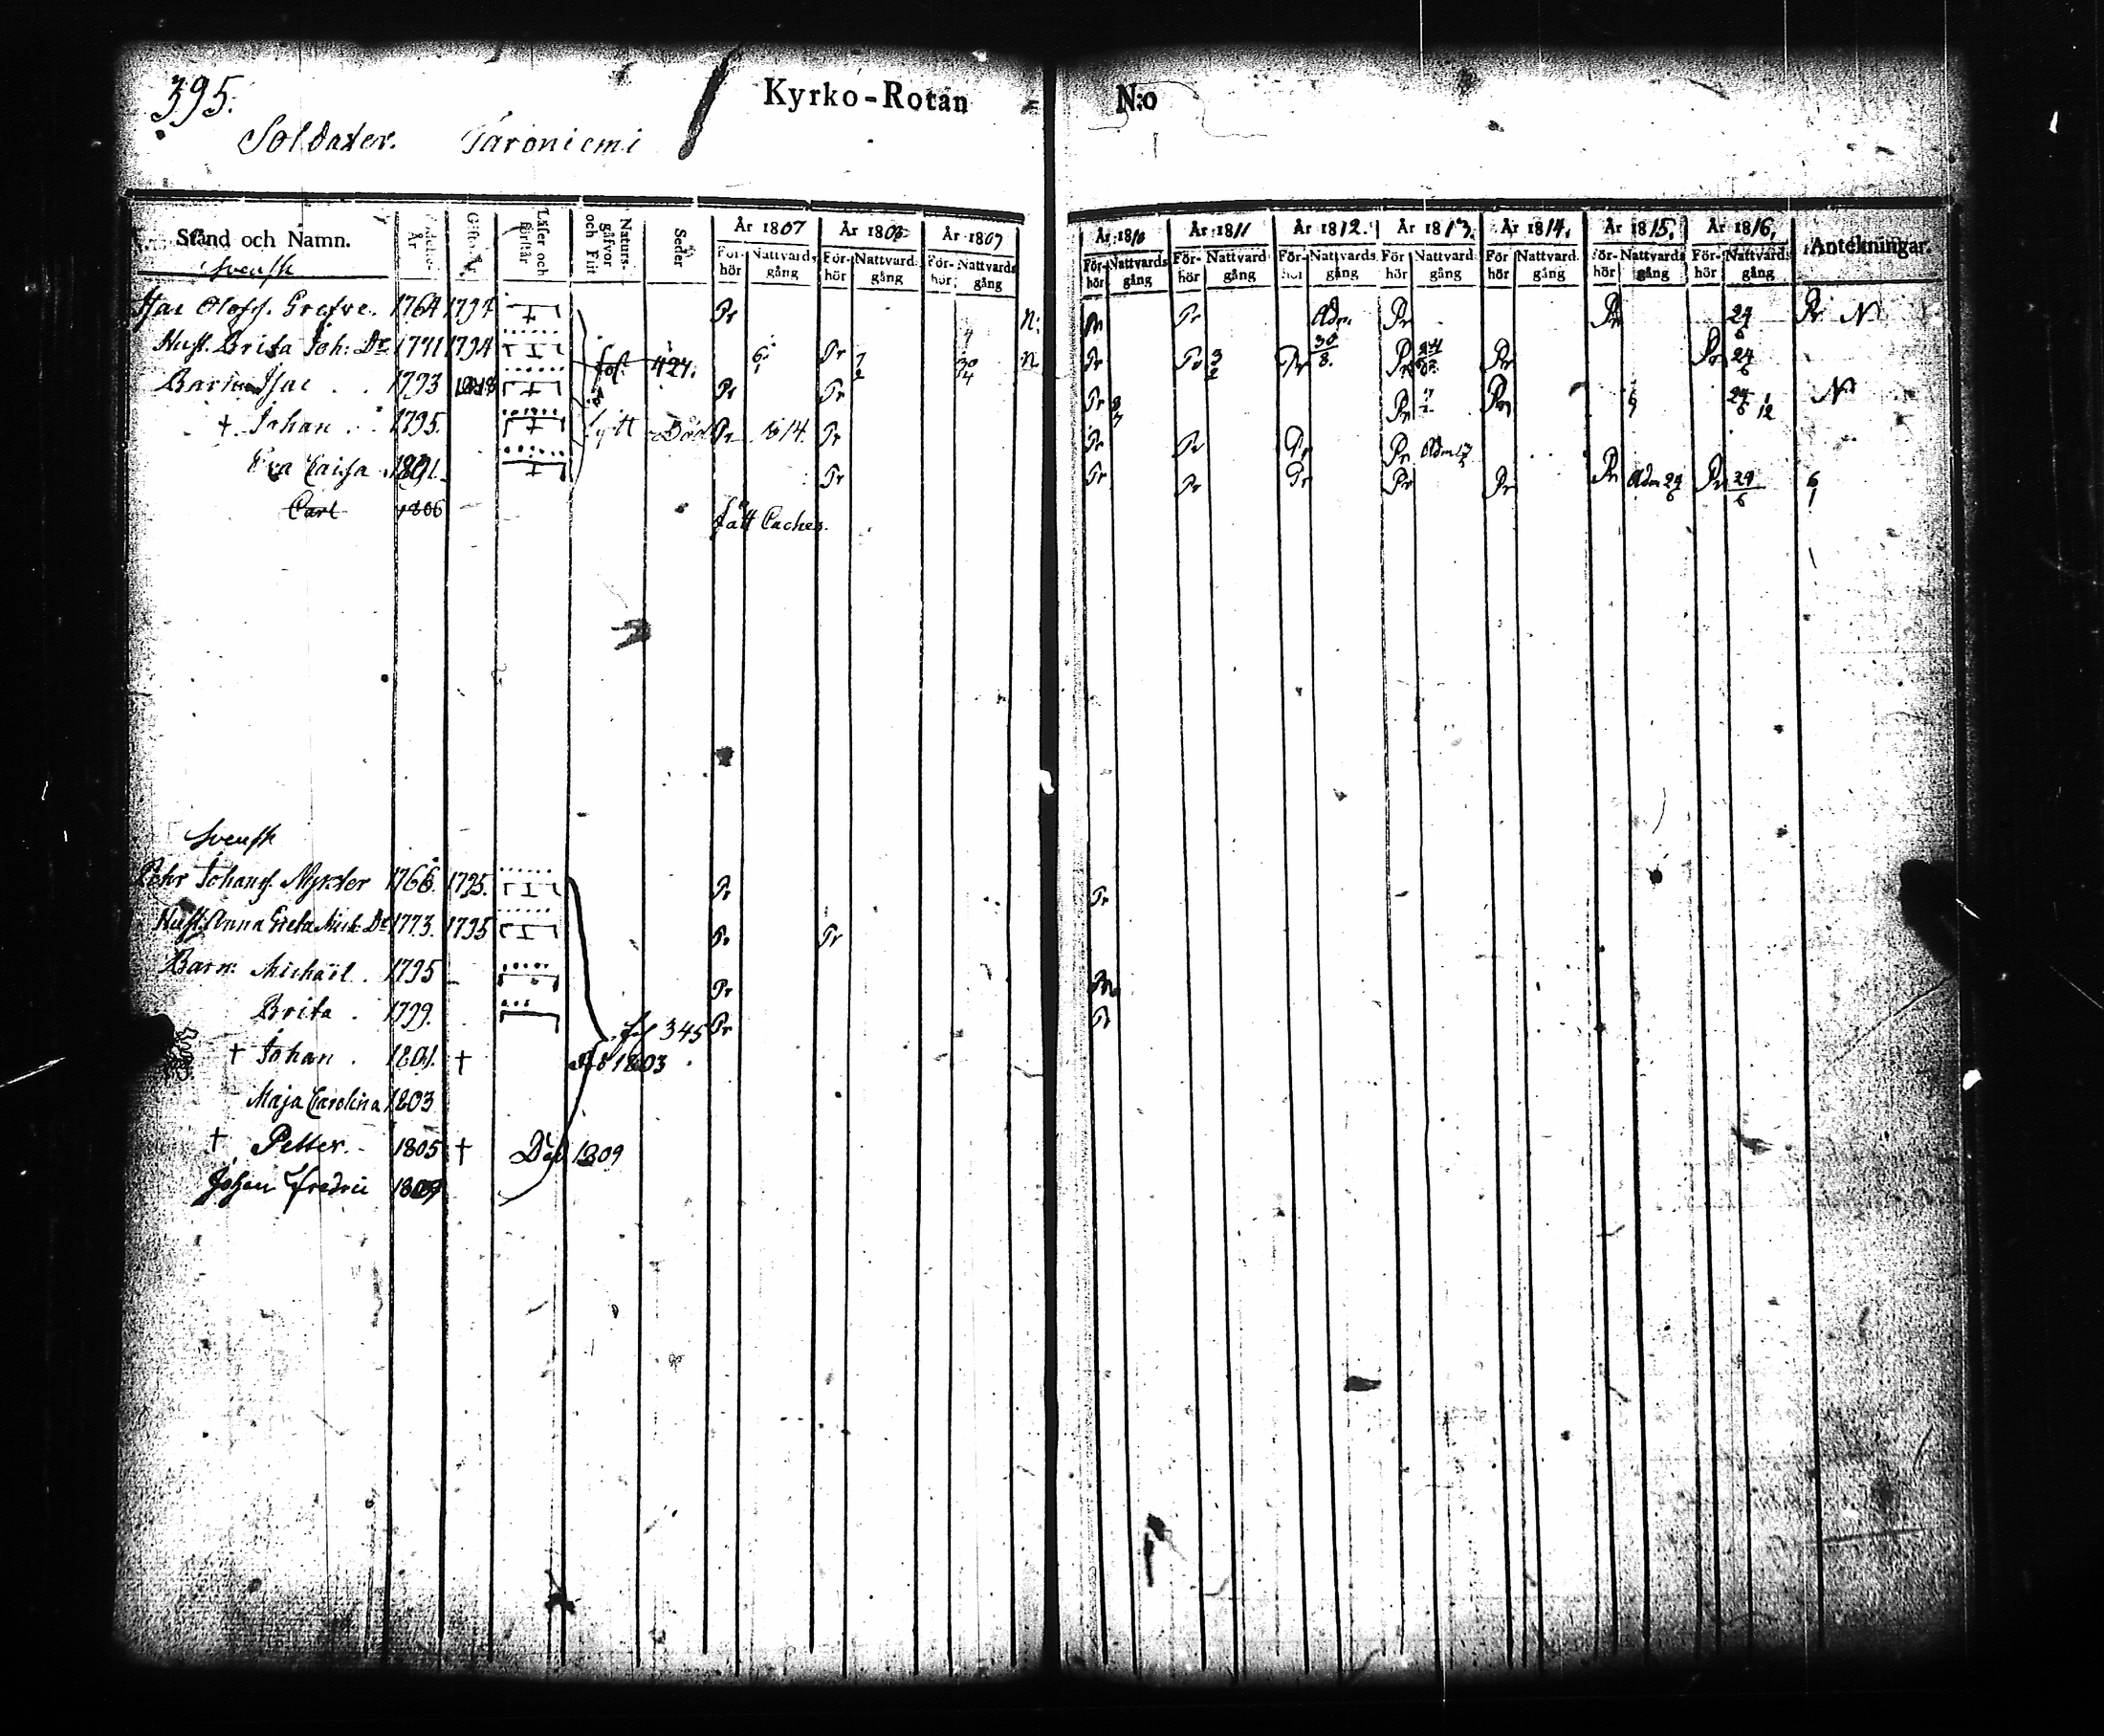 395.
Kyrko-Rotan N:o
Soldater. Taroniemi
Stånd och Namn. År Läser och förstår Naturs-gåfvor och Flit Seder År 1807 År 1808 År 1809 År 1810 År 1811 År 1812. År 1813. År 1814. År 1815. År 1816. Antekningar.
För-hör Nattvards gång För-hör Nattvards gång För-hör Nattvards gång För-hör Nattvards gång För-hör Nattvards gång För-hör Nattvards gång För-hör Nattvards gång För-hör Nattvards gång För-hör Nattvards gång För-hör Nattvards gång
Svensk
Isac Olofss. Grefve. 1764 1794 Pr N: Pr Pr Adm. Pr Pr 24/6 Pr N
Hust. Brita Joh: Dr 1771 1794 fol. 427. 6/1 Pr 7/2 N Pr Pr 3/2 Pr 30/8. Pr Pr Pr 24/6
Barn Isac 1793 Pr Pr Pr 8/7 Pr Pr 24/6 N
† Johan 1795. Död Pr 1814. Pr Pr Pr Pr Pr Adm
Eva Caisa 1801. Pr Pr Pr Pr Pr Pr Pr Adm 24/6 Pr 24/6 6/1
Carl 1806 fått Caches.
Svensk
Pehr Johanss. Nyster 1766. 1795. Pr Pr
Hust. Anna Greta Mich: Dr 1773. 1795 Pr Pr
Barn: Michaël. 1795 Pr Pr
Brita 1799. fol 345 Pr Pr
† Johan 1801. † 1803
Maja Carolina 1803
† Petter. 1805 † Död 1809
Johan Fredric 1809